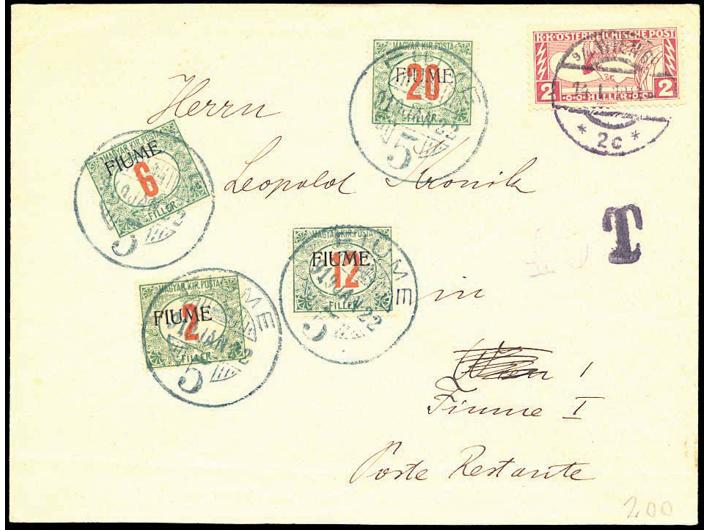 MAGYAR KIR. POSTA
FIUME
20
FILLÉR
K.K. ÖSTERREICHISCHE POST
2 HELLER 2
WIEN
* 2c *
Herrn
FIUME
6
FILLÉR
Leopold Kronik
T
MAGYAR KIR. POSTA
FIUME
12
FILLÉR
FIUME
919 JAN 22
5
MAGYAR KIR. POSTA
FIUME
2
FILLÉR
in
Wien I
Fiume I
Poste Restante
200